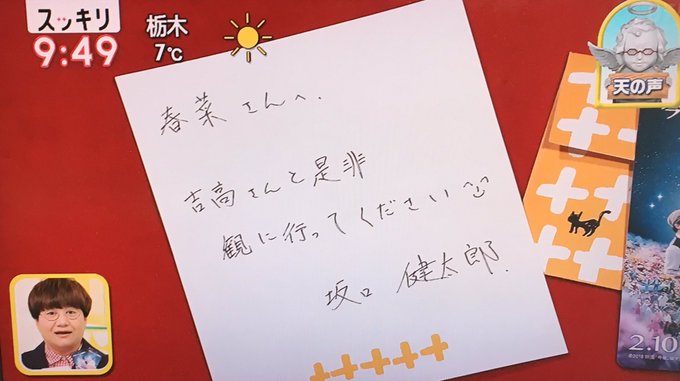 スッキリ
9:49
栃木
7℃
天の声
春菜さんへ.
吉高さんと是非
観に行ってください
坂口 健太郎.
2.10